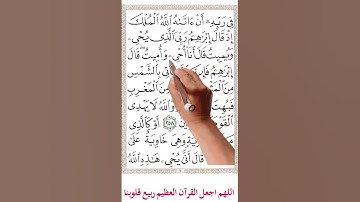 فِى رَبِّهِۦٓ أَنْ ءَاتَىٰهُ ٱللَّهُ ٱلْمُلْكَ
إِذْ قَالَ إِبْرَٰهِـۧمُ رَبِّىَ ٱلَّذِى يُحْىِۦ
وَيُمِيتُ قَالَ أَنَا۠ أُحْىِۦ وَأُمِيتُ قَالَ
إِبْرَٰهِـۧمُ بِٱلشَّمْسِ
مِنَ ٱلْمَغْرِبِ
فَبُهِتَ وَٱللَّهُ لَا يَهْدِى
ٱلْقَوْمَ ٢٥٨ أَوْ كَٱلَّذِى
وَهِىَ خَاوِيَةٌ عَلَىٰ
قَالَ أَنَّىٰ يُحْىِۦ هَٰذِهِ ٱللَّهُ
اللهم اجعل القرآن العظيم ربيع قلوبنا